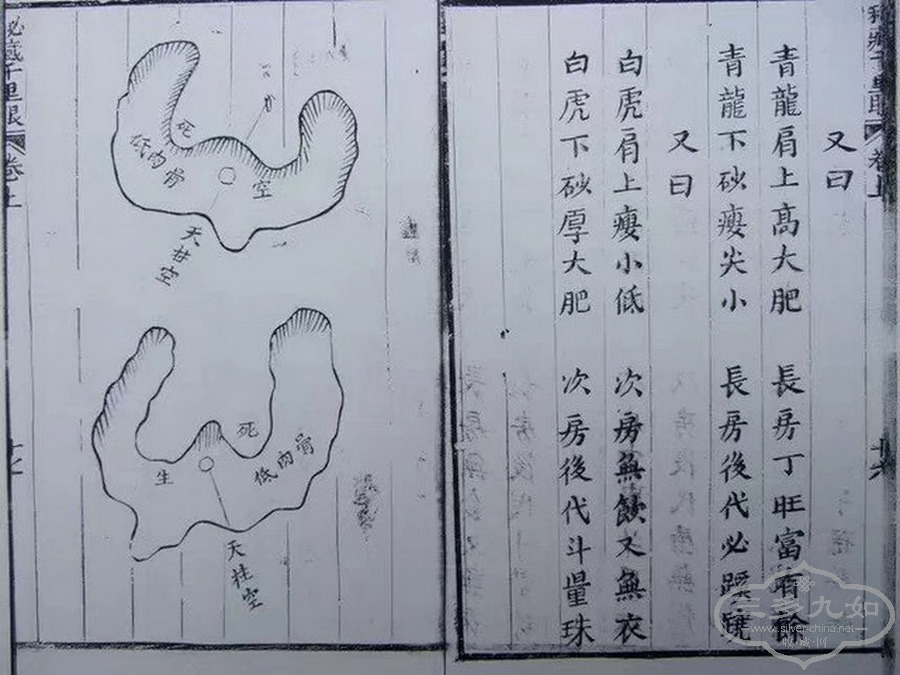 秘藏千里眼
卷上
十六
又曰
青龍肩上高大肥 長房丁旺富有
青龍下砂瘦尖小 長房後代必蹊蹺
又曰
白虎肩上瘦小低 次房無飲又無衣
白虎下砂厚大肥 次房後代斗量珠
空
低肉骨
死
低肉骨
生
天柱空
秘藏千里眼
卷上
三多九如
www.silverchina.net